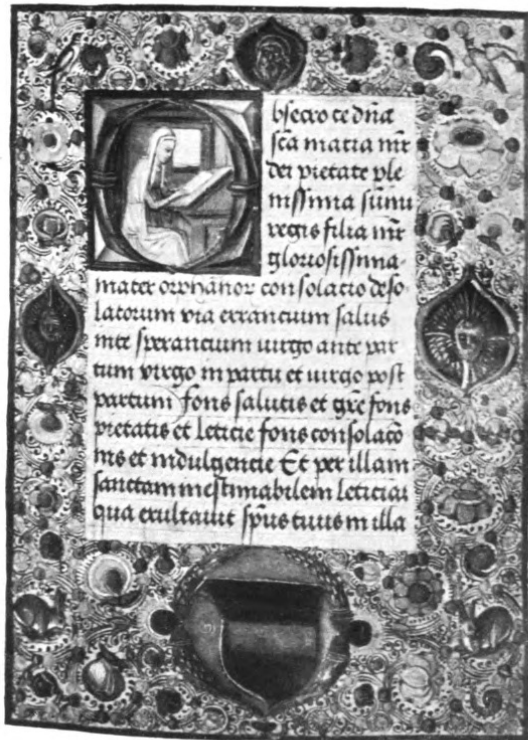 Obsecro te dña
scã maria mr̃
dei pietate ple
nissima sum̃i
regis filia mr̃
gloriosissima
mater orphanor consolacio deso-
latorum via errancium salus
in te sperancium uirgo ante par
tum virgo in partu et uirgo post
partum fons salutis et grẽ fons
pietatis et leticie fons consolacõ
nis et indulgencie Et per illam
sanctam inestimabilem leticiaʒ
qua exultauit sp̃us tuus in illa